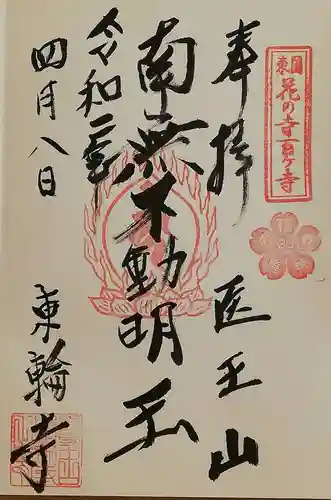 東国
花の寺百ヶ寺
奉拝
医王山
南無不動明王
令和二年
四月八日
東輪寺